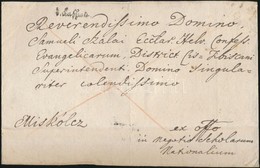 Reverendissimo Domino
Samueli Szalai Eccles. Helv. Confess.
Evangelicarum District Cis
Superintendenti Domino Singula-
riter colendissimo
Miskólcz
ex offo
in negotio Scholarum
Nationalium